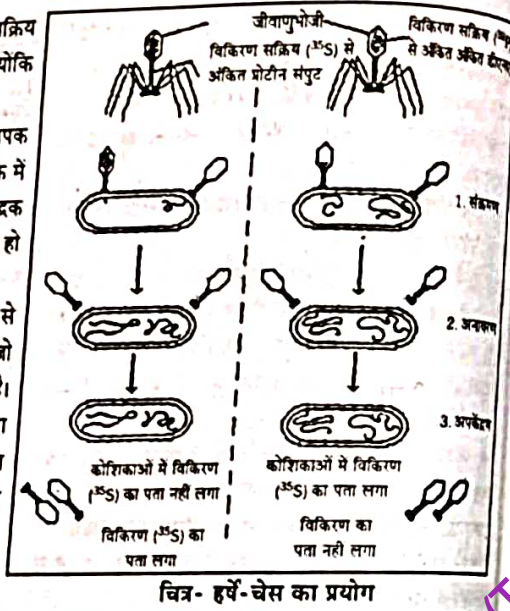 जीवाणुभोजी
विकिरण सक्रिय (³⁵S) से
अंकित प्रोटीन संपुट
विकिरण सक्रिय
से अंकित अंकित
1. संक्रमण
2. अनाकरण
3. अपकेंद्रण
कोशिकाओं में विकिरण
(³⁵S) का पता नहीं लगा
विकिरण (³⁵S) का
पता लगा
कोशिकाओं में विकिरण
(³⁵S) का पता लगा
विकिरण का
पता नहीं लगा
चित्र- हर्षे-चेस का प्रयोग